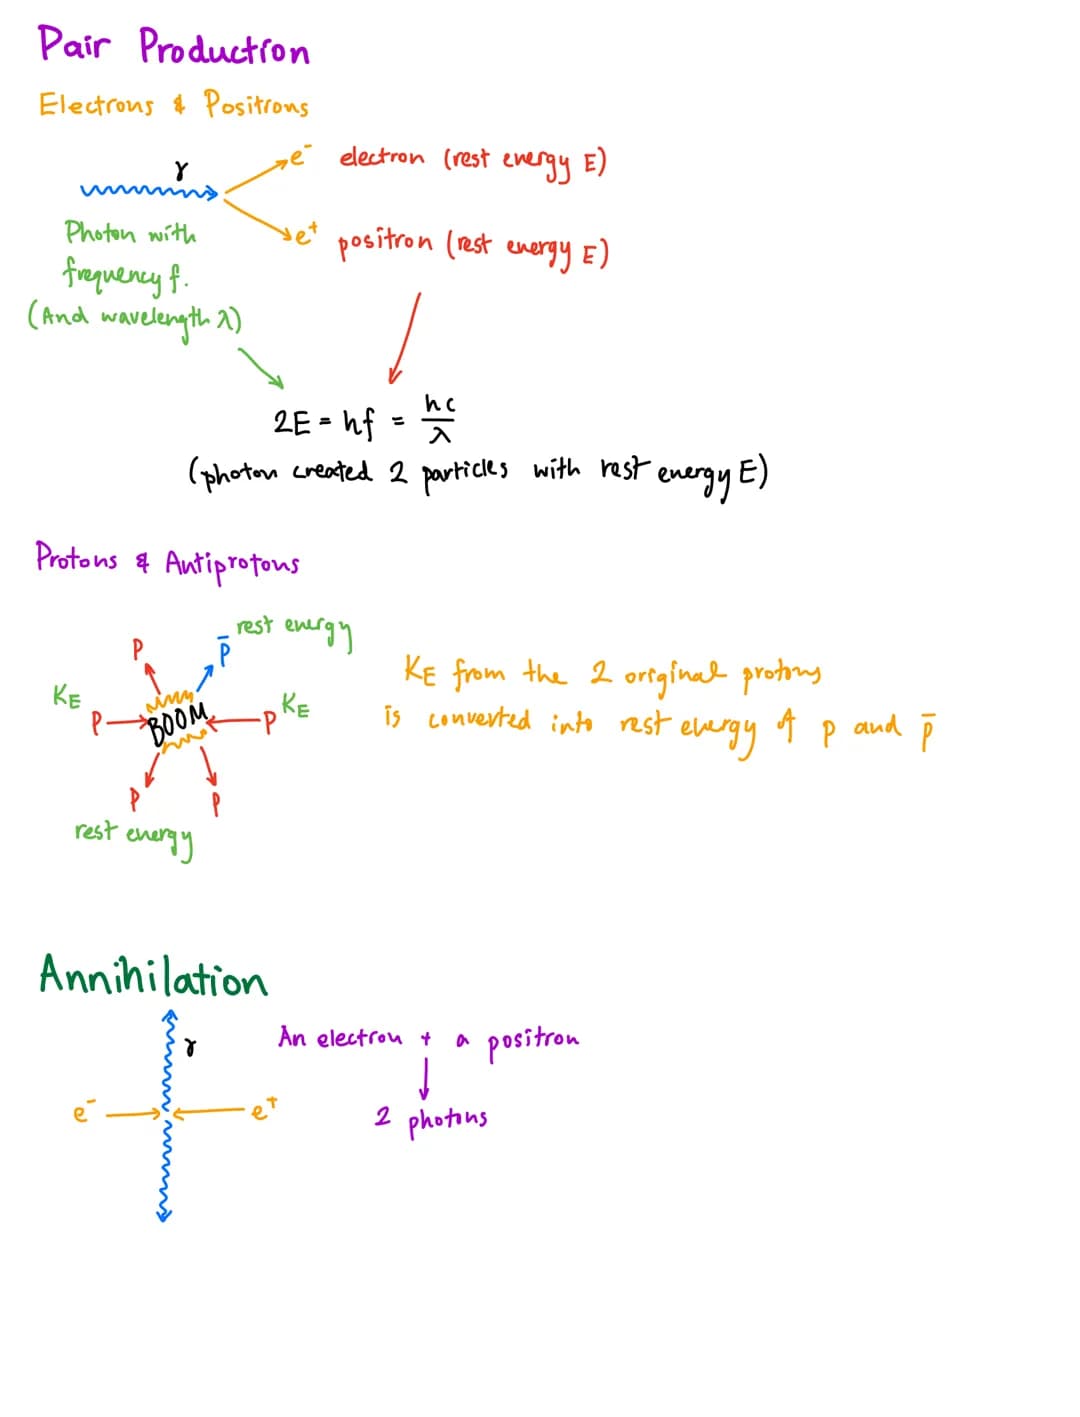 Pair Production
Electrons & Positrons
γ
e⁻ electron (rest energy E)
e⁺ positron (rest energy E)
Photon with
frequency f.
(And wavelength λ)
2E = hf = hc/λ
(photon created 2 particles with rest energy E)
Protons & Antiprotons
P p̄ rest energy
KE P BOOM P KE
P P
rest energy
KE from the 2 original protons
is converted into rest energy of p and p̄
Annihilation
γ
e⁻ e⁺
An electron + a positron
2 photons